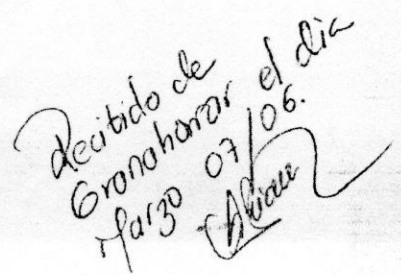 Recibido de
Granahorrar el dia
Marzo 07/06.